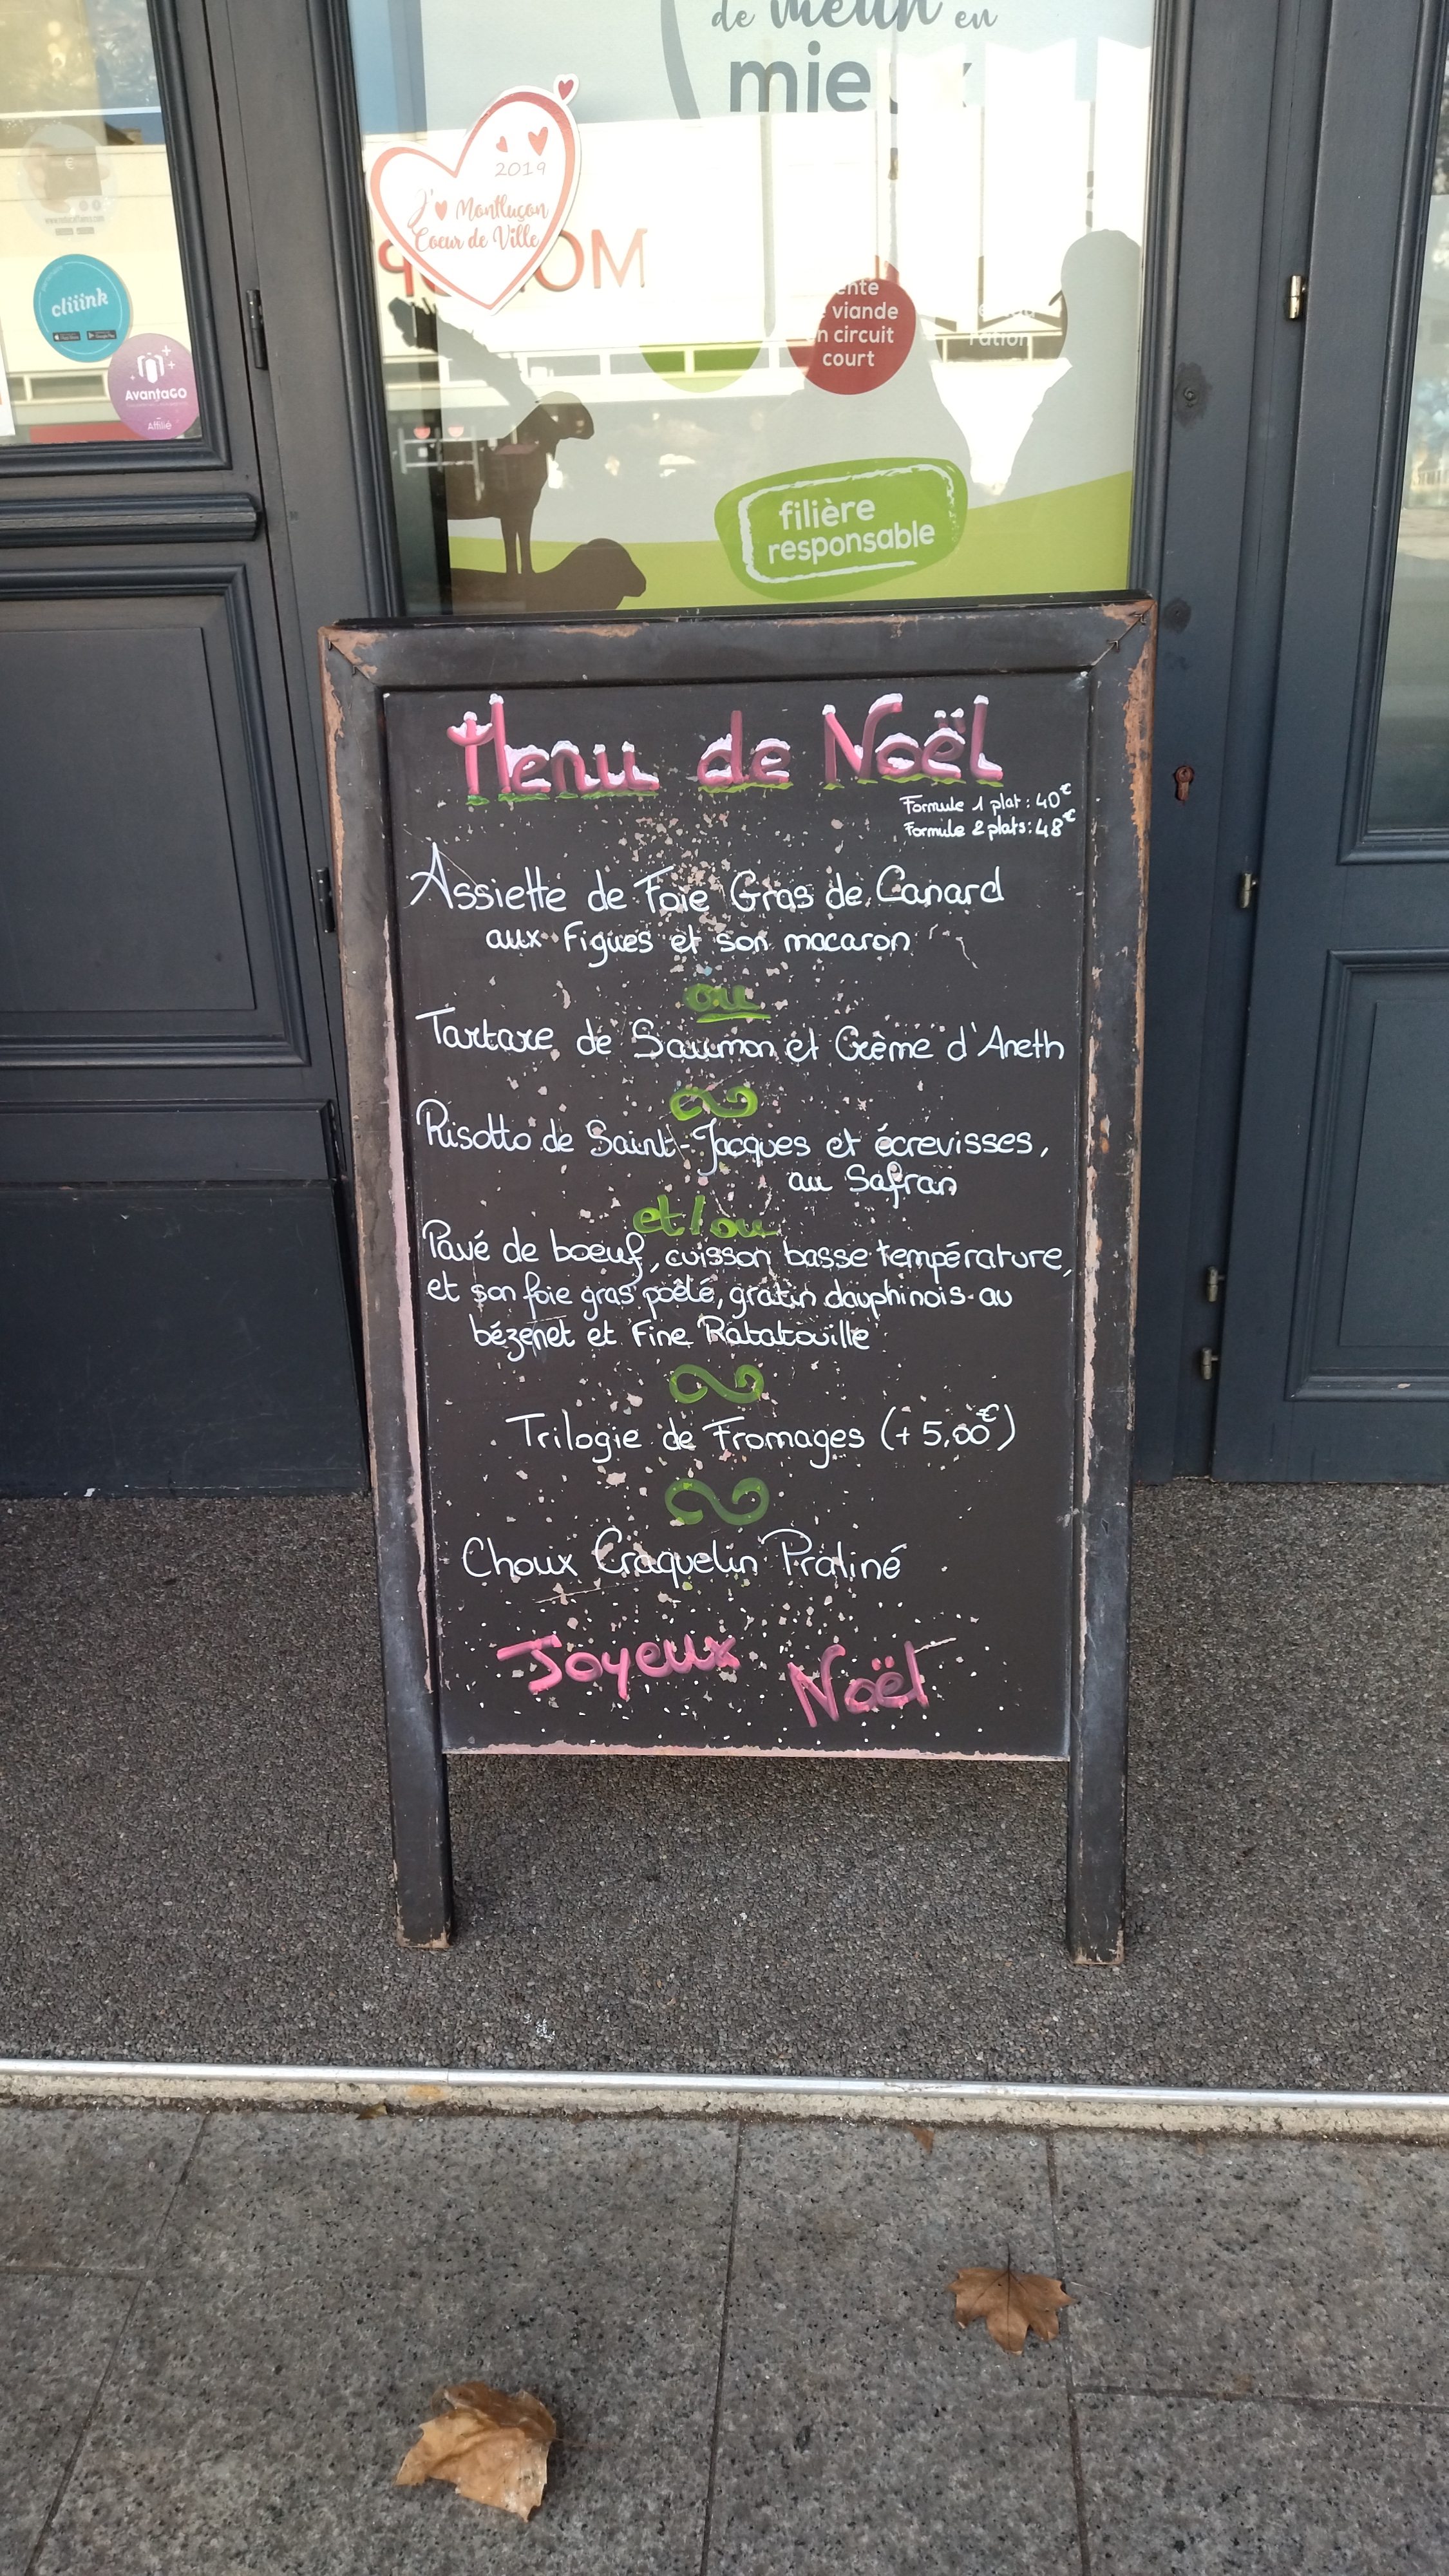 de meun en
mieux
2019
J'♥ Montluçon
Coeur de Ville
cliiink
Avantago
Affilié
viande
circuit
court
filière
responsable
Menu de Noël
Formule 1 plat : 40€
Formule 2 plats : 48€
Assiette de Foie Gras de Canard
aux Figues et son macaron
ou
Tartare de Saumon et Crème d'Aneth
Risotto de Saint-Jacques et écrevisses,
au Safran
et/ou
Pavé de boeuf, cuisson basse température,
et son foie gras poêlé, gratin dauphinois au
bézenet et Fine Ratatouille
Trilogie de Fromages (+ 5,00€)
Choux Craquelin Praliné
Joyeux Noël